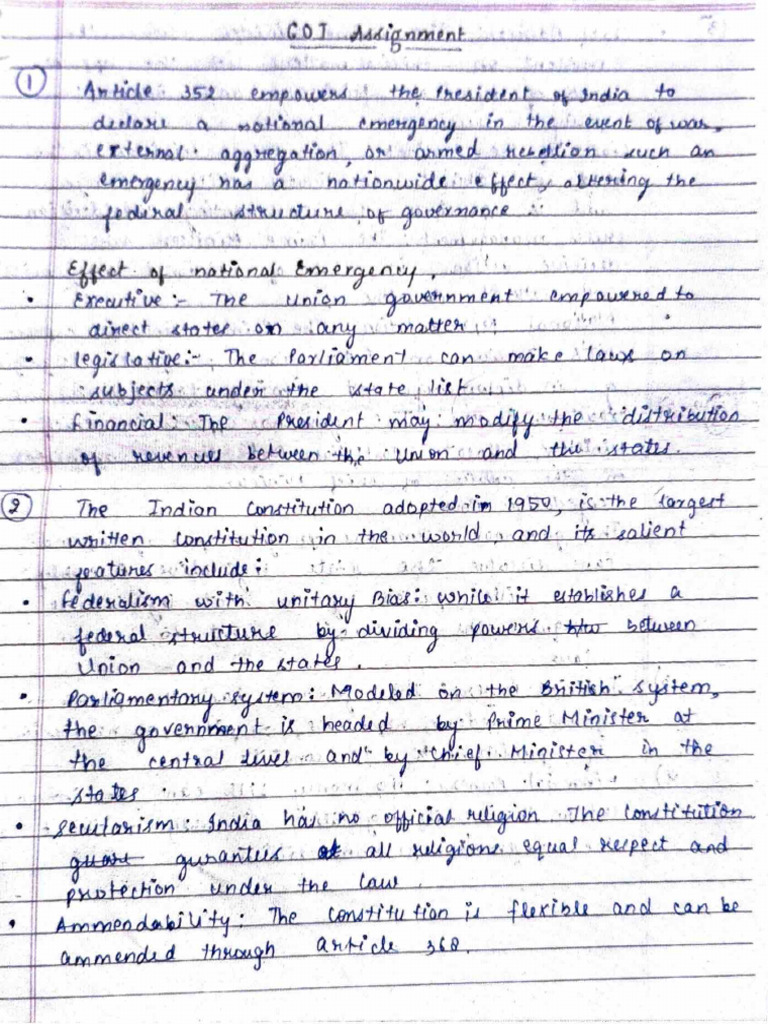 COI Assignment
① Article 352 empowers the President of India to
declare a national emergency in the event of war,
external aggregation, or armed rebellion such an
emergency has a nationwide effect, altering the
federal structure of governance
Effect of national Emergency.
• Executive :- The Union government empowered to
direct states on any matter.
• legislative:- The Parliament can make laws on
subjects under the state list
• financial: The President may modify the distribution
of revenues between the Union and the states.
② The Indian Constitution adopted in 1950, is the largest
written constitution in the world, and its salient
features include:
• federalism with unitary Bias: while it establishes a
federal structure by dividing powers between
Union and the states.
• Parliamentary system: Modeled on the British system,
the government is headed by Prime Minister at
the central level and by Chief Minister in the
states
• secularism: India has no official religion The constitution
gurantees all religions equal respect and
protection under the law.
• Ammendability: The constitution is flexible and can be
ammended through article 368.